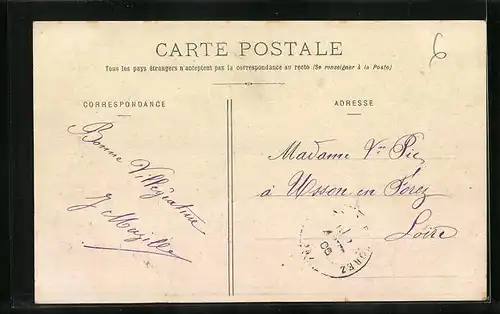 CARTE POSTALE
Tous les pays étrangers n'acceptent pas la correspondance au recto (Se renseigner à la Poste)
6
CORRESPONDANCE
ADRESSE
Bonne Villégiature
J Mazille
Madame Vve Pic
à Usson en Forez
Loire
OREZ